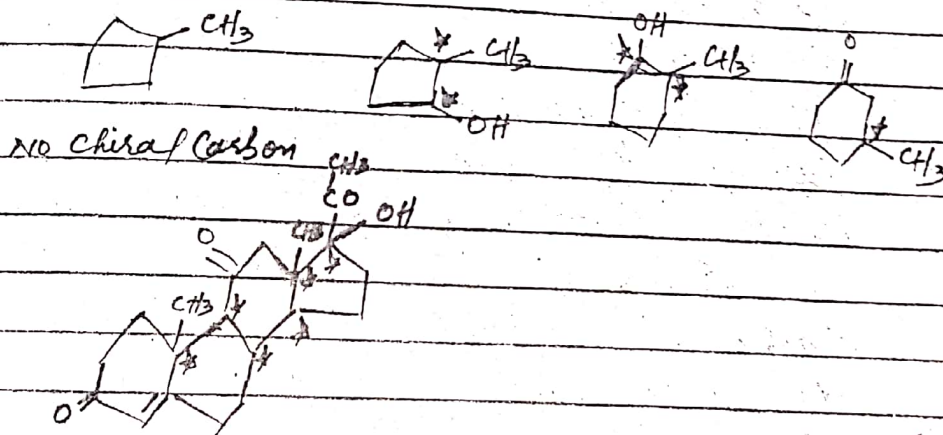 CH3
CH3
OH
OH
CH3
O
CH3
No Chiral Carbon
CH3
CO
OH
CH3
O
CH3
O